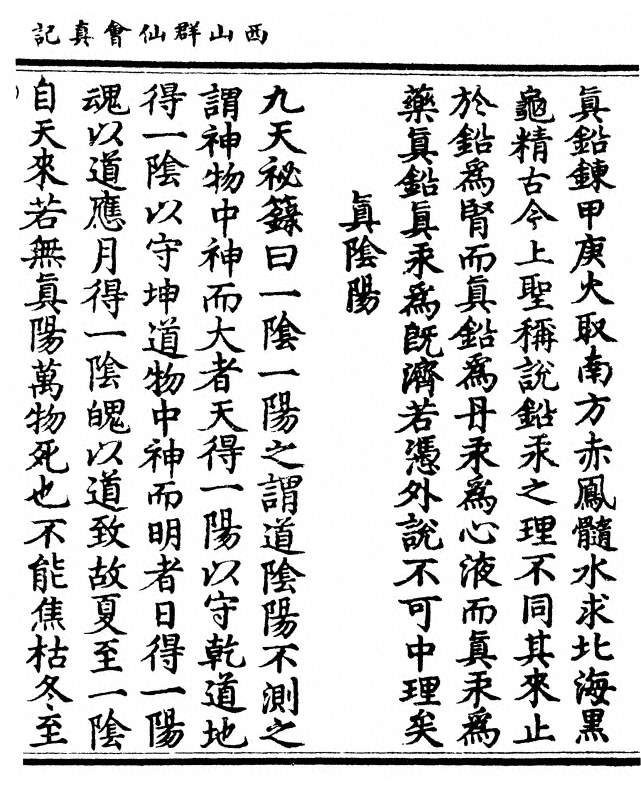 西山群仙會真記
真鉛鍊甲庚火取南方赤鳳髓水求北海黑
龜精古今上聖稱說鉛汞之理不同其來止
於鉛爲腎而真鉛爲丹汞爲心液而真汞爲
藥真鉛真汞爲旣濟若憑外說不可中理矣
真陰陽
九天祕籙曰一陰一陽之謂道陰陽不測之
謂神物中神而大者天得一陽以守乾道地
得一陰以守坤道物中神而明者日得一陽
魂以道應月得一陰魄以道致故夏至一陰
自天來若無真陽萬物死也不能焦枯冬至